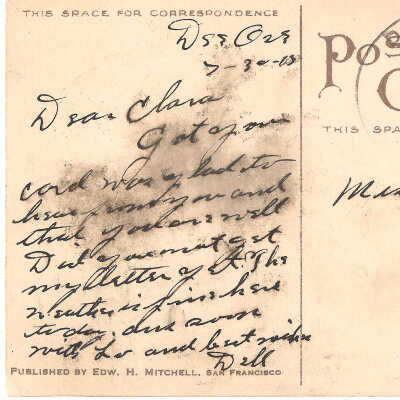 THIS SPACE FOR CORRESPONDENCE
Dee Ore
7-30-
Dear Clara
Got your
card was glad to
hear from you and
that you are well
Did you not get
my letter yet. The
weather is fine here
today. ans soon
with Lo and best wishes
Dell
PUBLISHED BY EDW. H. MITCHELL, SAN FRANCISCO
Pos
C
THIS SPA